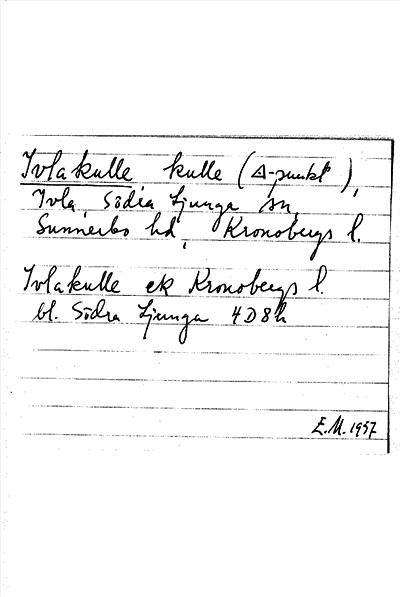 Ivlakulle kulle (Δ-punkt),
Ivla, Södra Ljunga sn,
Sunnerbo hd, Kronobergs l.
Ivlakulle ek Kronobergs l.
bl. Södra Ljunga 4D8h
E.M. 1957